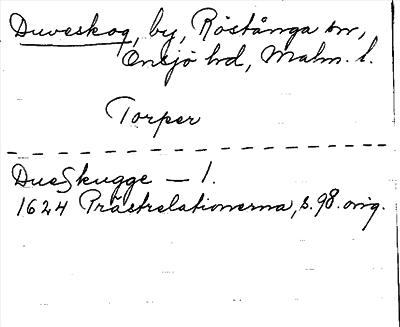 Duveskog, by, Röstånga sn,
Onsjö hd, Malm. l.
Torper
DueSkugge — 1.
1624 Prästrelationerna, s. 98. orig.